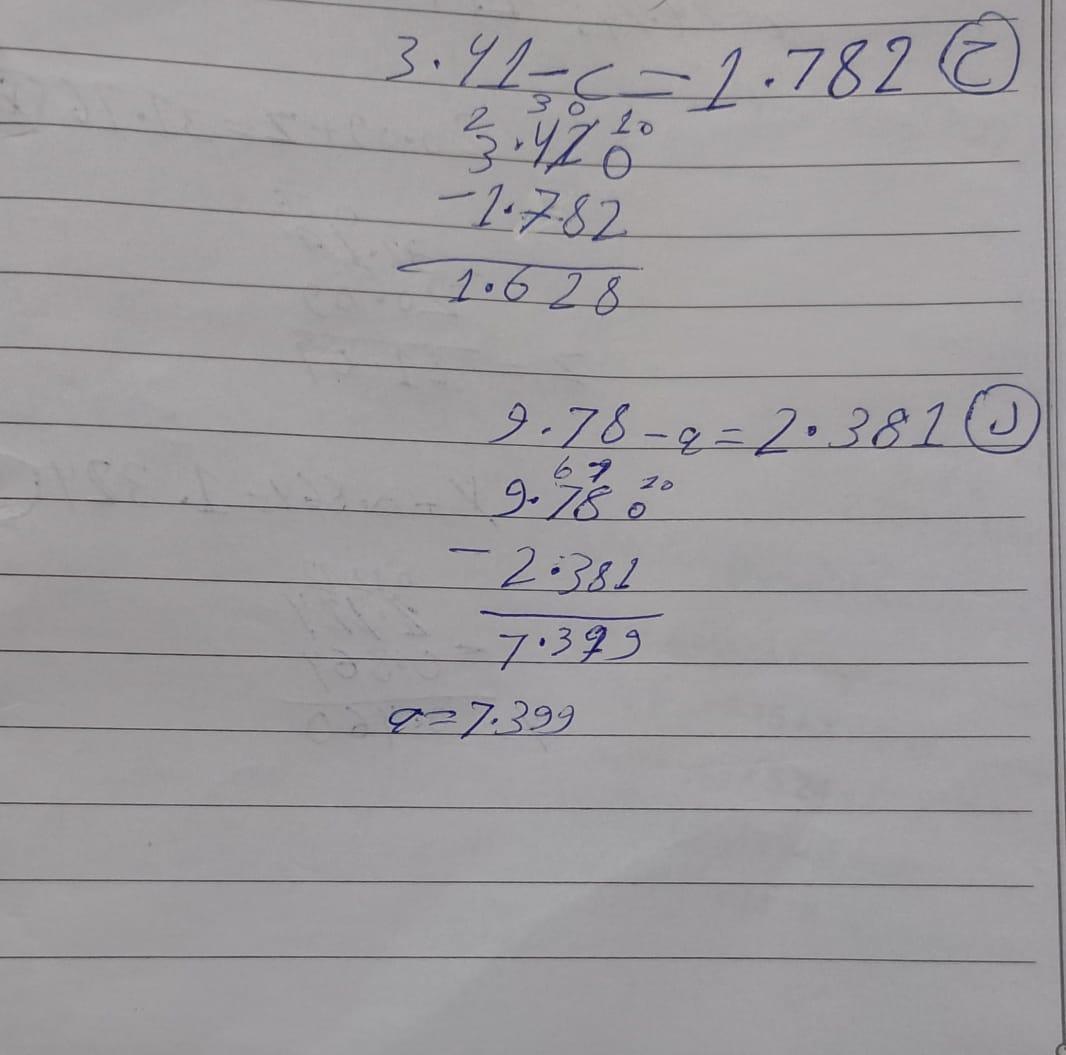 3.41 - c = 1.782 ج
2 3 0 10
3.410
-1.782
1.628
9.78 - q = 2.381 د
6 7 10
9.780
- 2.381
7.399
q = 7.399